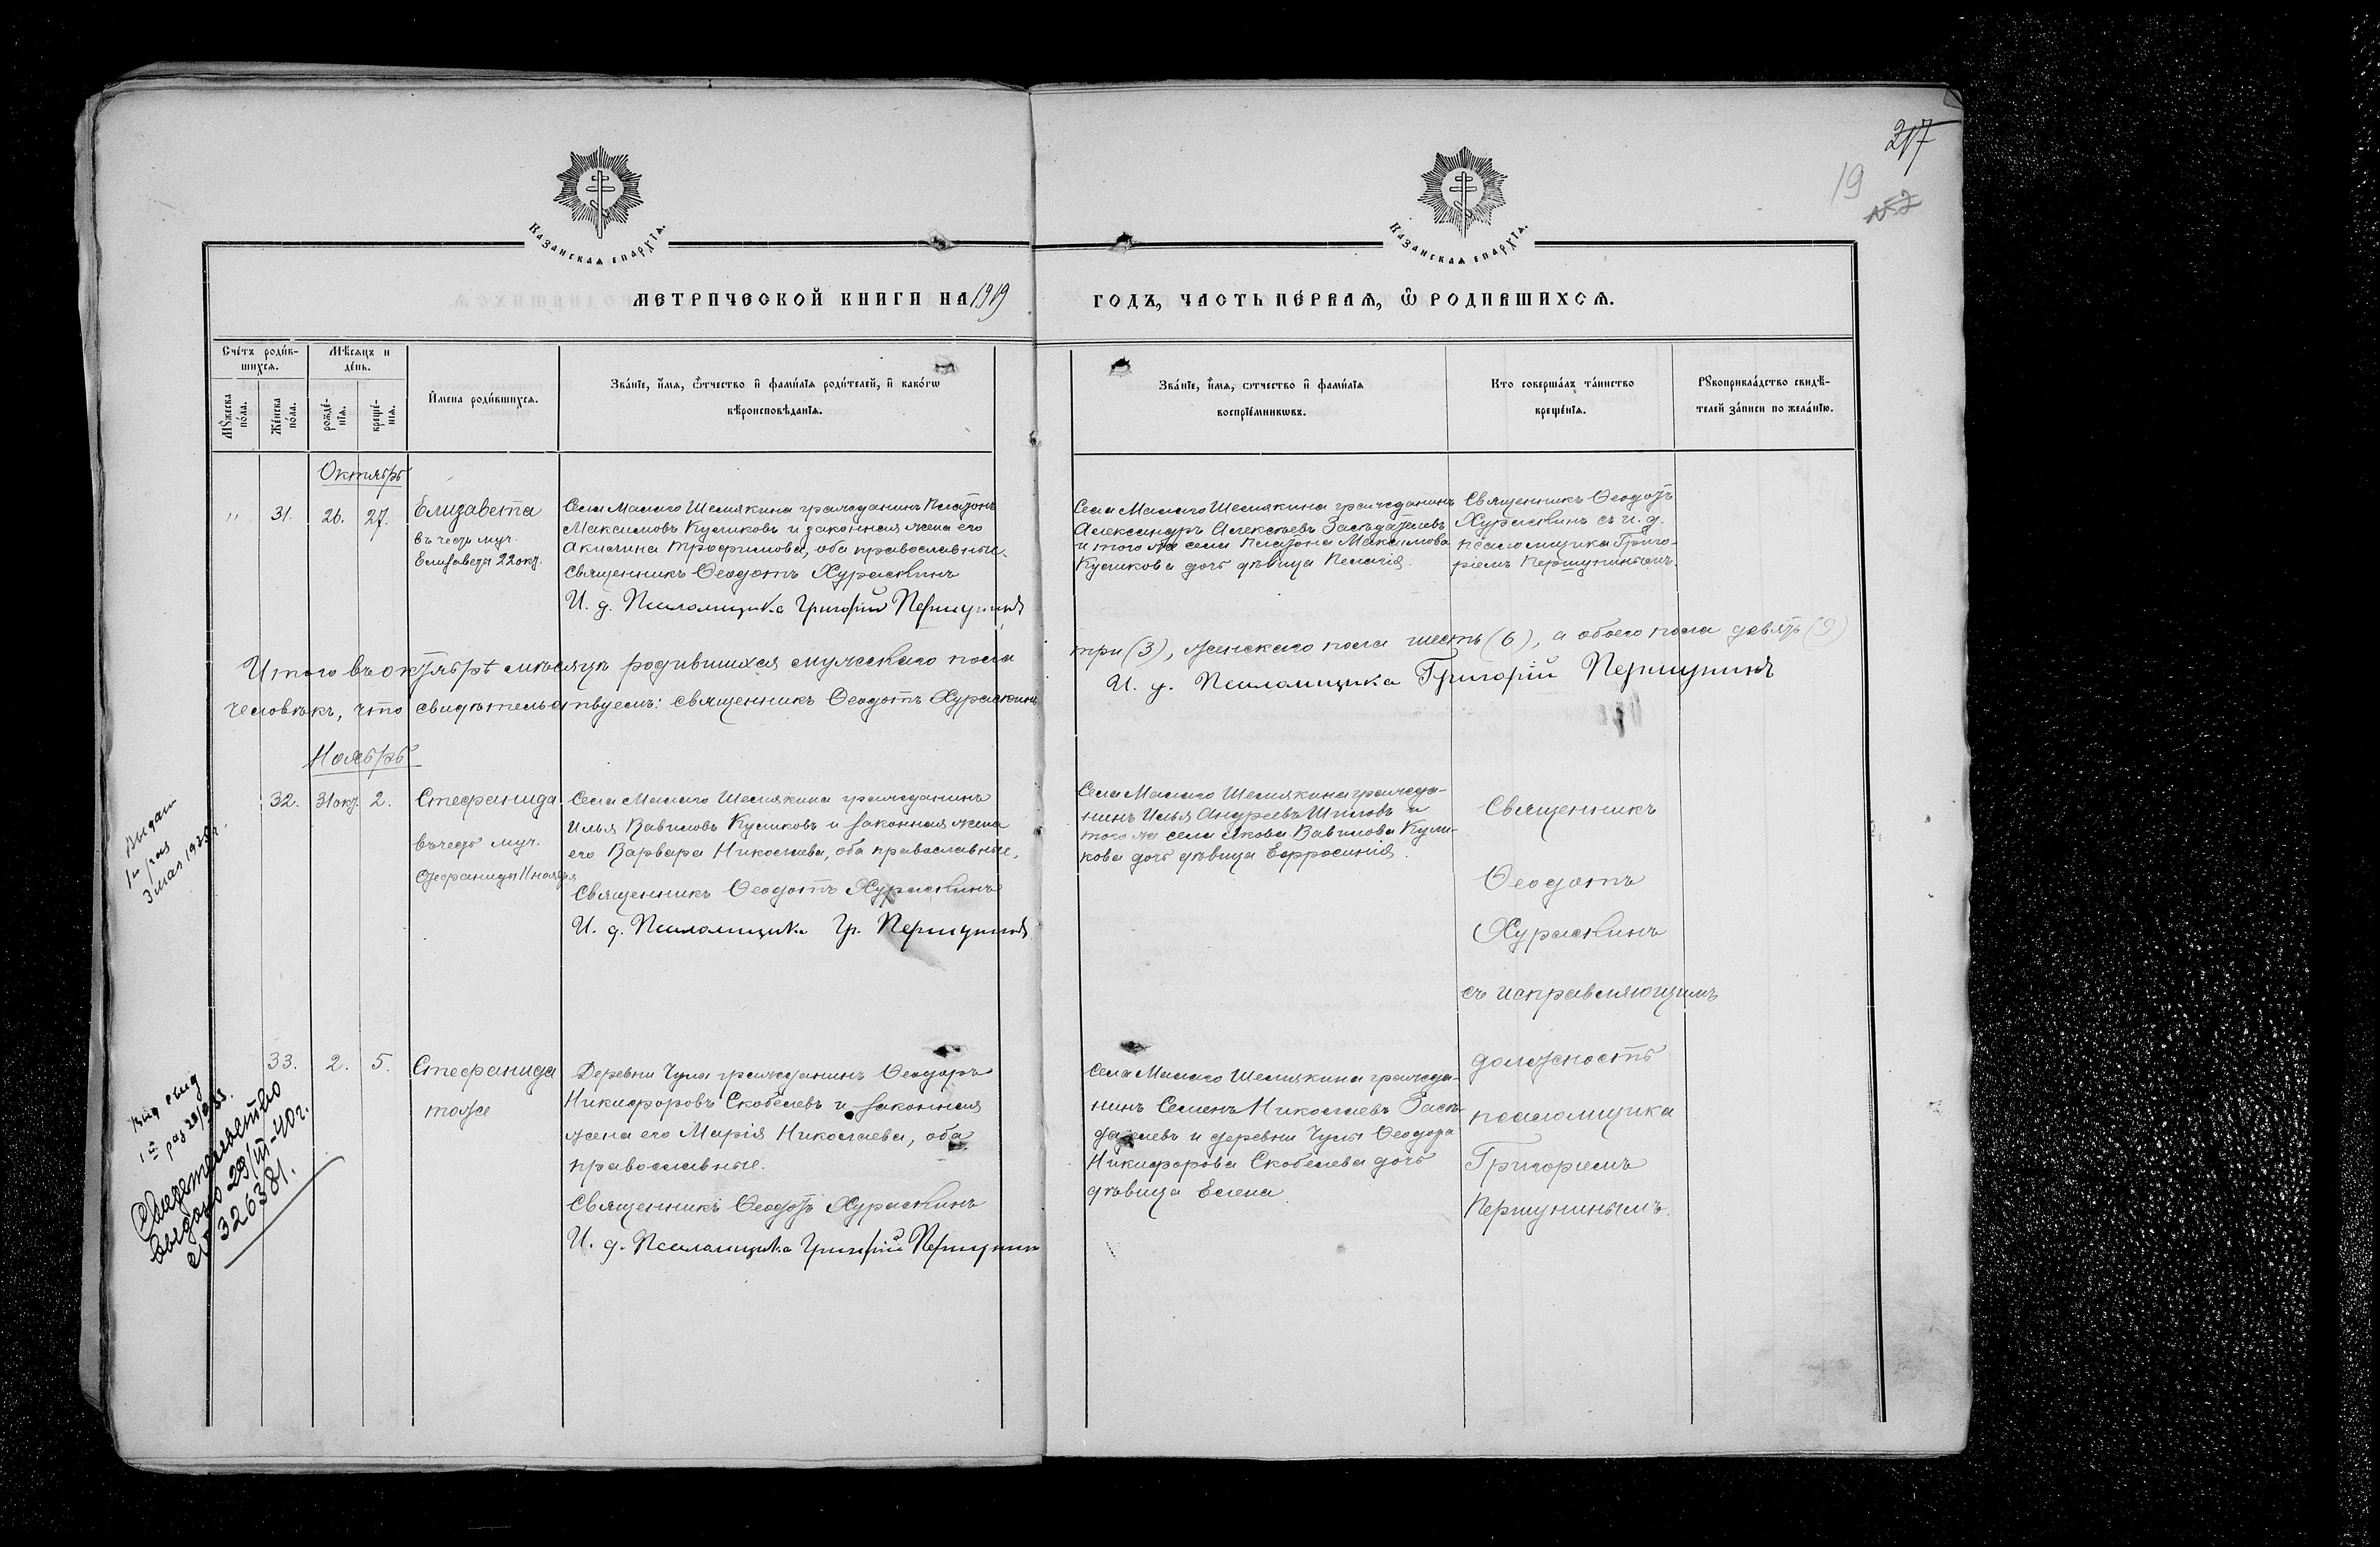 217
19
Казанская епархїѧ.
Казанская епархїѧ.
МЕТРИЧЕСКОЙ КНИГИ НА 1919
ГОДЪ, ЧАСТЬ ПЕ́РВАѦ, Ѡ҆ РОДИВШИХСѦ.
Сче́тъ роди́в-
шихсѧ.
Мѣ́сѧцъ и
де́нь.
Мꙋ́жеска
по́ла.
Же́нска
по́ла.
рожде́-
нїѧ.
креще́-
нїѧ.
И҆мена роди́вшихсѧ.
Зва́нїе, и҆́мѧ, ѻ҆́тчество и҆ фами́лїѧ роди́телей, и҆ како́гѡ
вѣроисповѣ́данїѧ.
Зва́нїе, и҆́мѧ, ѻтчество и҆ фами́лїѧ
воспрїе́мникѡвъ.
Кто соверша́лъ та́инство
креще́нїѧ.
Рꙋкоприкла́дство свидѣ́-
телей за́писи по жела́нїю.
Октябрь
" 31. 26. 27.
Елизавета
въ честь муч.
Елизаветы 22 окт.
Села Малаго Шемякина гражданинъ Платонъ
Максимовъ Куликовъ и законная жена его
Акилина Трофимова, оба православные.
Священникъ Ѳеодотъ Хураськинъ
И. д. Псаломщика Григорій Першунинъ
Села Малаго Шемякина гражданинъ
Александръ Алексѣевъ Засѣдателевъ
и того же села Платона Максимова
Куликова дочь дѣвица Пелагія.
Священникъ Ѳеодотъ
Хураськинъ съ и. д.
псаломщика Григо-
ріемъ Першунинымъ.
Итого въ октябрѣ мѣсяцѣ родившихся мужескаго пола
три (3), женскаго пола шесть (6), а обоего пола девять (9)
человѣкъ, что свидѣтельствуемъ: священникъ Ѳеодотъ Хураськинъ
И. д. Псаломщика Григорій Першунинъ
Ноябрь
32. 31 окт. 2.
Стефанида
въ честь муч.
Стефаниды 11 ноября
Села Малаго Шемякина гражданинъ
Илья Вавиловъ Куликовъ и законная жена
его Варвара Николаева, оба православные.
Священникъ Ѳеодотъ Хураськинъ
И. д. Псаломщика Гр. Першунинъ
Села Малаго Шемякина гражда-
нинъ Илья Андреевъ Шиловъ и
того же села Якова Вавилова Кули-
кова дочь дѣвица Евфросинія.
Священникъ
Ѳеодотъ
Хураськинъ
съ исправляющимъ
должность
псаломщика
Григоріемъ
Першунинымъ.
33. 2. 5.
Стефанида
тоже
Деревни Чула гражданинъ Ѳеодоръ
Никифоровъ Скобелевъ и законная
жена его Марія Николаева, оба
православные.
Священникъ Ѳеодотъ Хураськинъ
И. д. Псаломщика Григорій Першунин
Села Малаго Шемякина гражда-
нинъ Семенъ Николаевъ Засѣ-
дателевъ и деревни Чулы Ѳеодора
Никифорова Скобелева дочь
дѣвица Елена.
Выдан
1й раз
3 мая
1й раз
Свидетельство
выдано 28/III-40 г.
№ 326381.